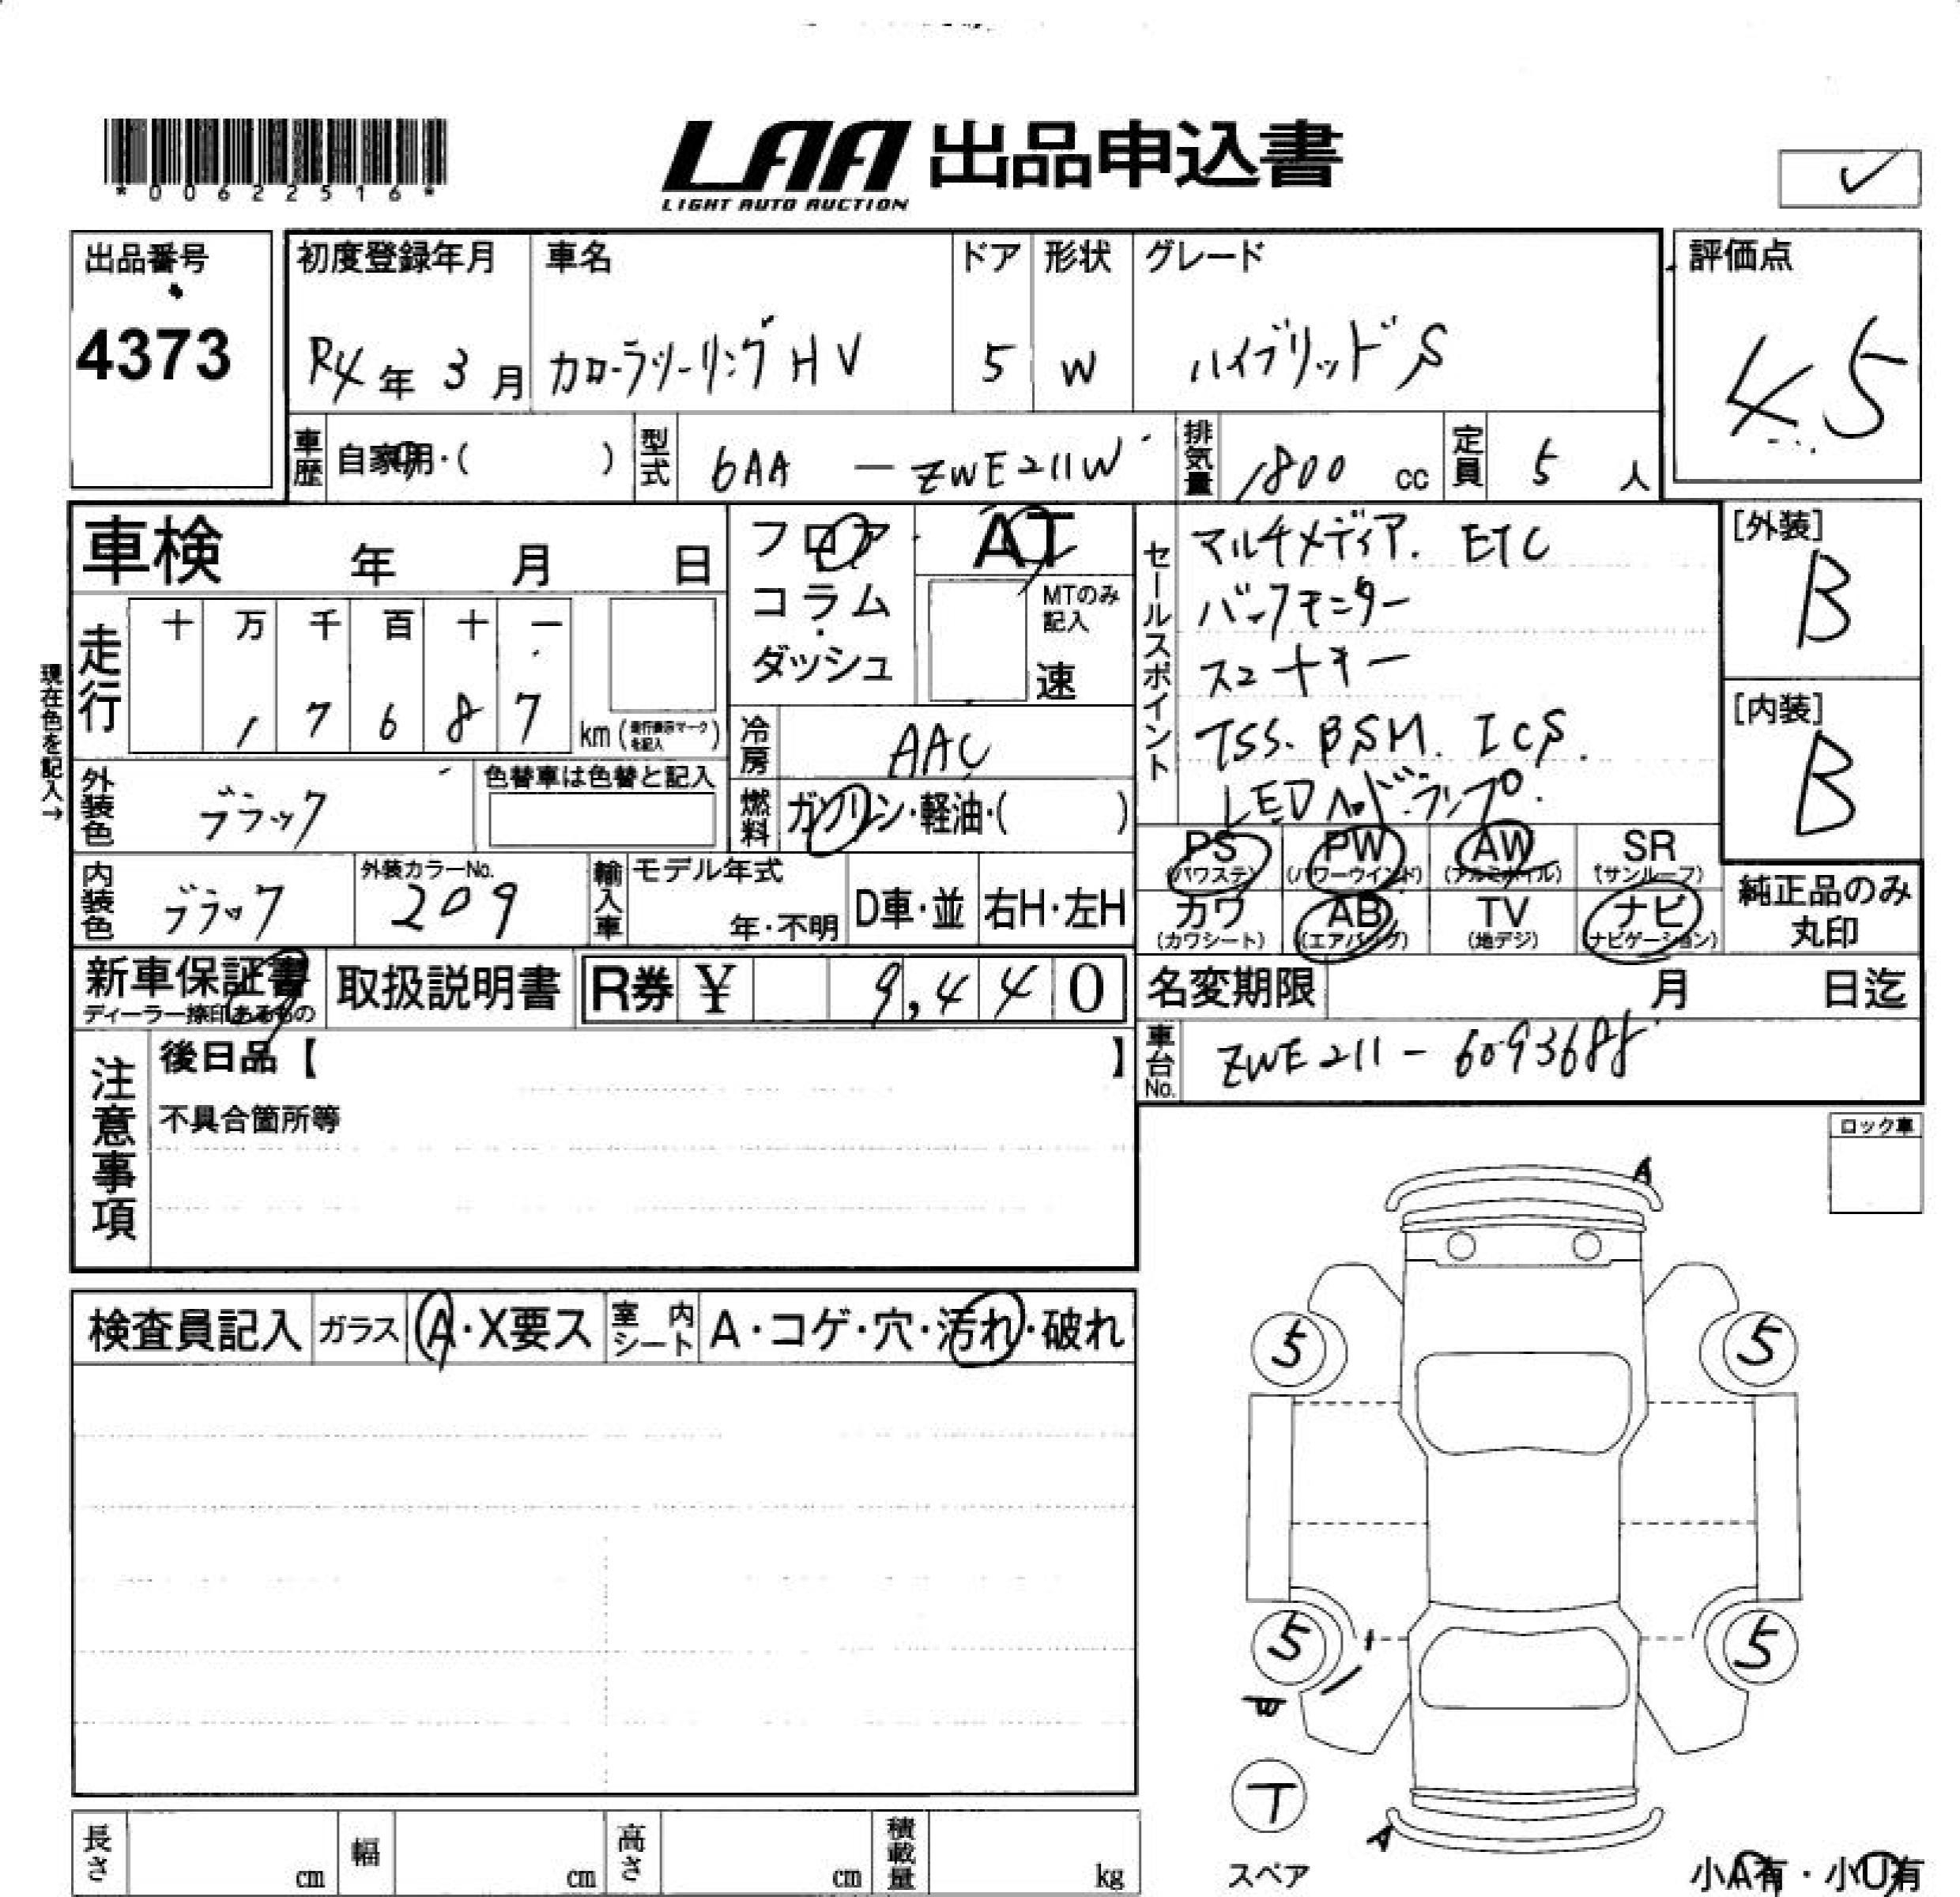 *00622516*
LAA 出品申込書
LIGHT AUTO AUCTION
出品番号
4373
初度登録年月
R4年 3月
車名
カローラツーリングHV
ドア
5
形状
W
グレード
ハイブリッドS
評価点
4.5
車歴 自家用・( )
型式 6AA - ZWE211W
排気量 1800 cc
定員 5 人
車検 年 月 日
走行 十 万 千 百 十 一
1 7 6 8 7 km
現在色を記入→
フロア
コラム
・
ダッシュ
AT
MTのみ記入
速
冷房 AAC
燃料 ガソリン・軽油・( )
外装色 ブラック
色替車は色替と記入
内装色 ブラック
外装カラーNo.
209
輸入車
モデル年式
年・不明
D車・並
右H・左H
セールスポイント
マルチメディア. ETC
バックモニター
スマートキー
TSS. BSM. ICS.
LEDヘッドランプ.
[外装]
B
[内装]
B
PS
(パワステ)
PW
(パワーウインド)
AW
(アルミホイル)
SR
(サンルーフ)
カワ
(カワシート)
AB
(エアバッグ)
TV
(地デジ)
ナビ
(ナビゲーション)
純正品のみ
丸印
新車保証書
取扱説明書
R券 ¥ 9,440
名変期限 月 日迄
車台No. ZWE211-6093688
注意事項
後日品【 】
不具合箇所等
ロック車
検査員記入 ガラス A・X要ス 室内シート A・コゲ・穴・汚れ・破れ
A
5 5
5 5
W
T
A
スペア
小A有・小U有
長さ cm 幅 cm 高さ cm 積載量 kg